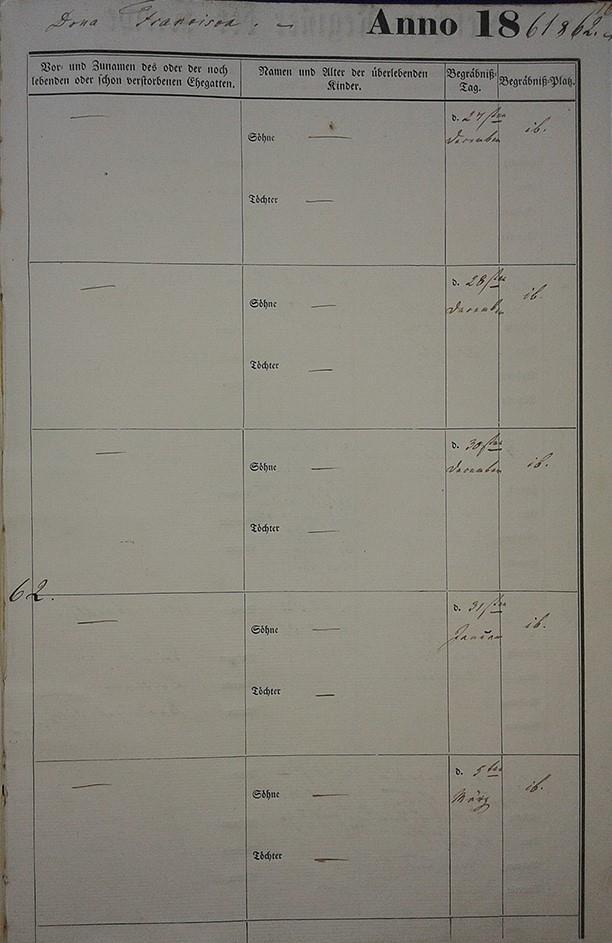 Dona Francisca. — Anno 1861 & 62.
Vor- und Zunamen des oder der noch
lebenden oder schon verstorbenen Ehegatten.
Namen und Alter der überlebenden
Kinder.
Begräbniß-
Tag.
Begräbniß-Platz.
— Söhne — d. 27sten
December ib.
Töchter —
— Söhne — d. 28sten
December ib.
Töchter —
— Söhne — d. 30sten
December ib.
Töchter —
62.
— Söhne — d. 31sten
Januar ib.
Töchter —
— Söhne — d. 5ten
März ib.
Töchter —